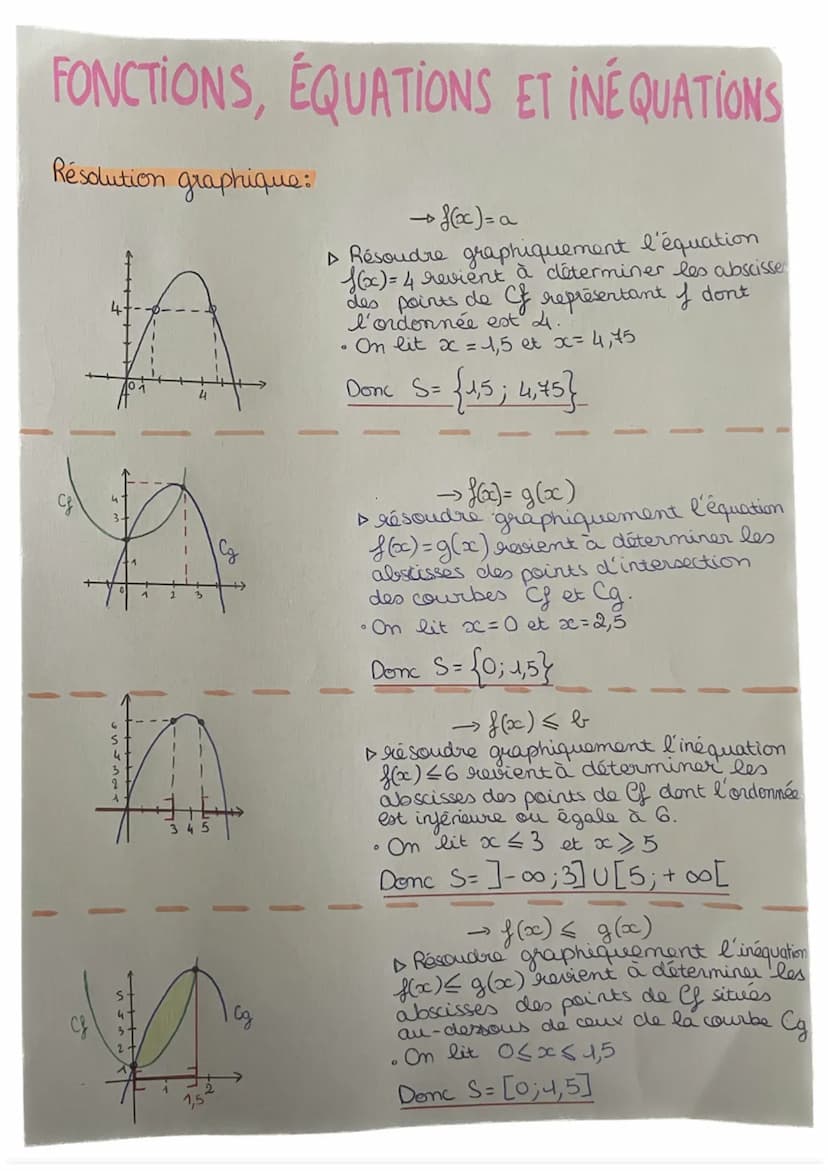 FONCTIONS, ÉQUATIONS ET INÉQUATIONS
Résolution graphique:
→ f(x)=a
▷ Résoudre graphiquement l'équation
f(x)=4 revient à déterminer les abscisse
des points de Cf représentant f dont
l'ordonnée est 4.
• On lit x=1,5 et x=4,75
Donc S={1,5; 4,75}
4
0 1
4
→ f(x)= g(x)
▷ résoudre graphiquement l'équation
f(x)=g(x) revient à déterminer les
abscisses des points d'intersection
des courbes Cf et Cg.
• On lit x=0 et x=2,5
Donc S={0;1,5}
Cf
Cg
4
3
1
0 1 2 3
→ f(x) ⩽ b
▷ résoudre graphiquement l'inéquation
f(x)≤6 revient à déterminer les
abscisses des points de Cf dont l'ordonnée
est inférieure ou égale à 6.
• On lit x ⩽ 3 et x ⩾ 5
Donc S= ]-∞;3]U[5;+∞[
6
5
4
3
2
1
3 4 5
→ f(x) ⩽ g(x)
▷ Résoudre graphiquement l'inéquation
f(x)≤ g(x) revient à déterminer les
abscisses des points de Cf situés
au-dessous de ceux de la courbe Cg
• On lit 0⩽x⩽1,5
Donc S=[0;1,5]
Cf
Cg
5
4
3
2
1
1 2
1,5